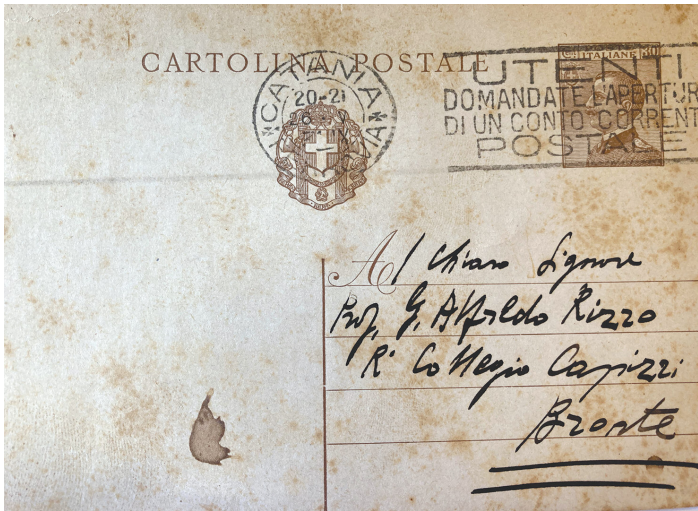 CARTOLINA POSTALE
CATANIA
20-21
FERROVIA
ITALIANE 30
UTENTI
DOMANDATE L'APERTUR
DI UN CONTO CORRENT
POSTALE
Al Chiaro Signore
Prof. G. Alfredo Rizzo
R. Collegio Capizzi
Bronte